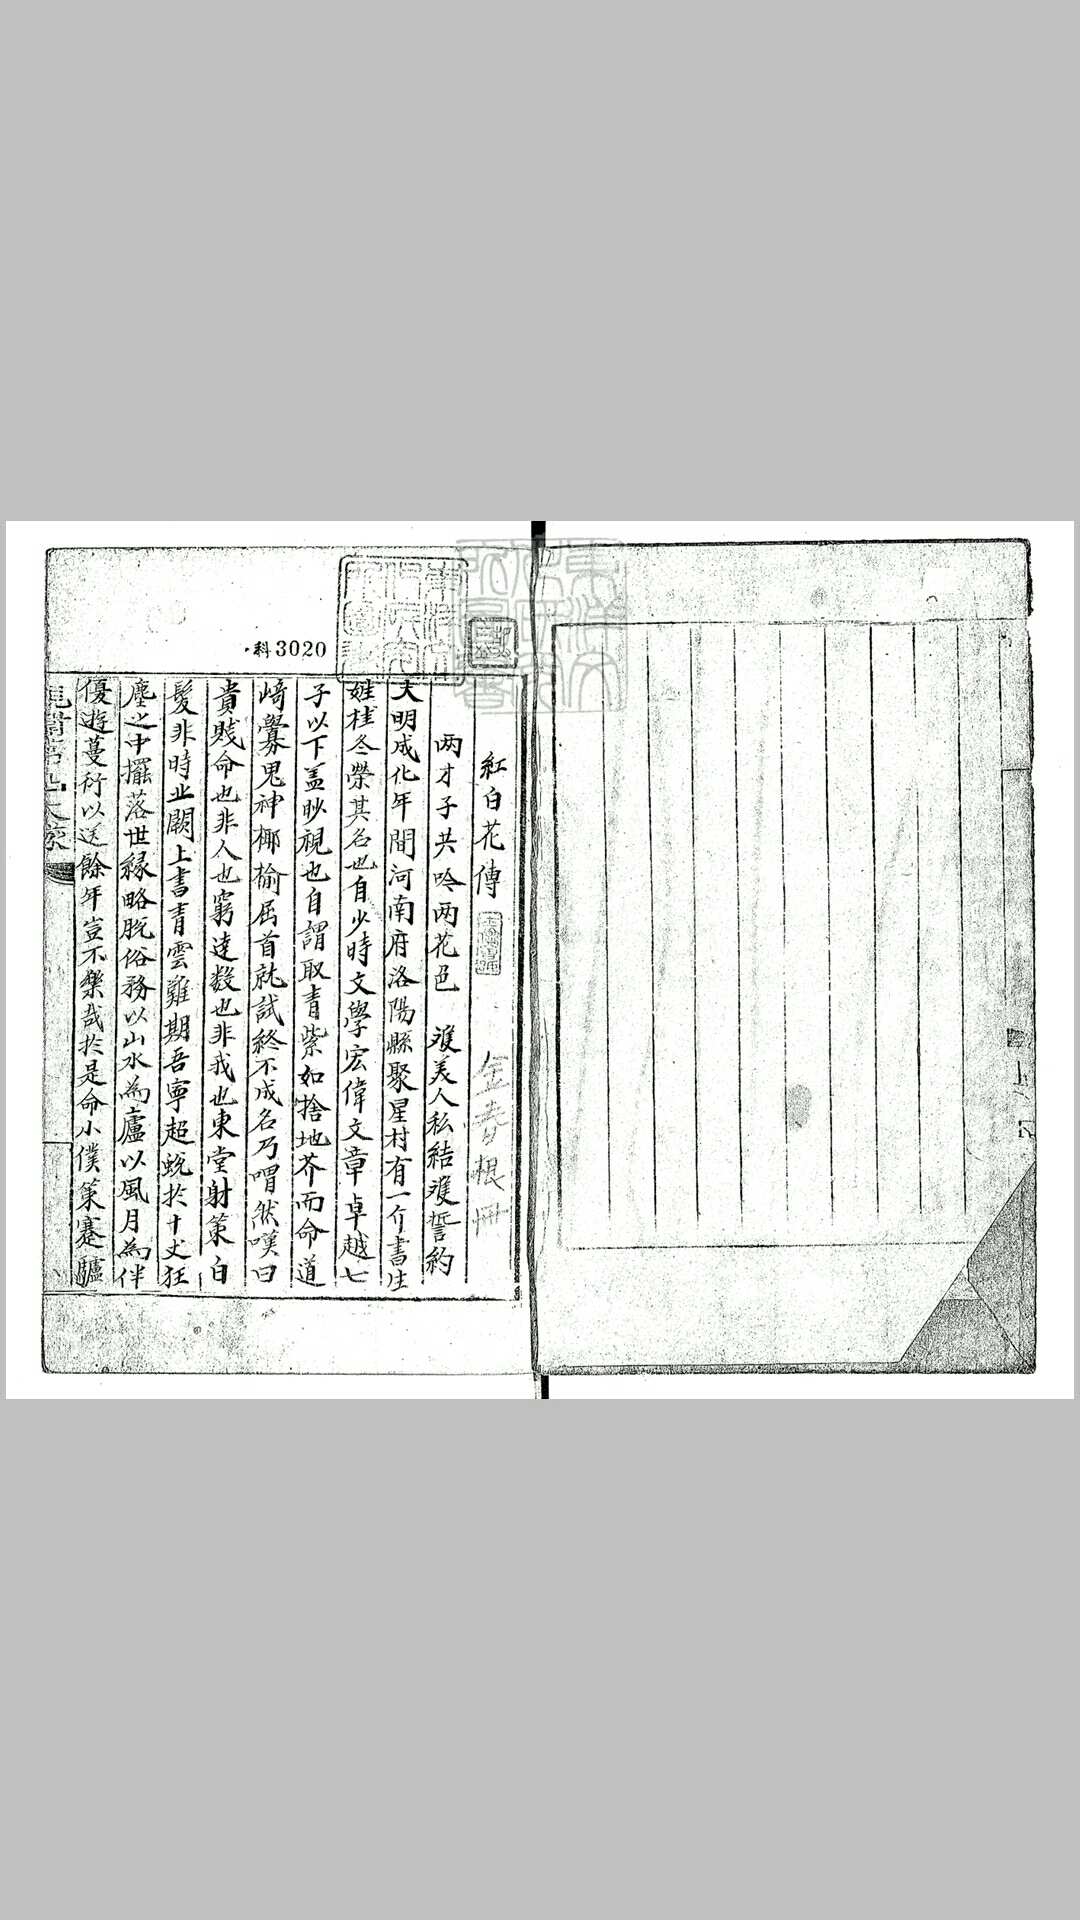 紅白花傳
金春根冊
两才子共吟两花色　雙美人私結雙誓約
大明成化年間河南府洛陽縣聚星村有一介書生
姓桂冬榮其名也自少時文學宏偉文章卓越七
子以下盖眇視也自謂取青紫如捨地芥而命道
崎釁鬼神揶揄屈首就試終不成名乃喟然嘆曰
貴賤命也非人也窮達数也非我也東堂射策白
髮非時北闕上書青雲難期吾寧超蛻於十丈狂
塵之中擺落世緣略脫俗務以山水為廬以風月為伴
優遊蔓衍以送餘年豈不樂哉於是命小僕策蹇驢
科3020